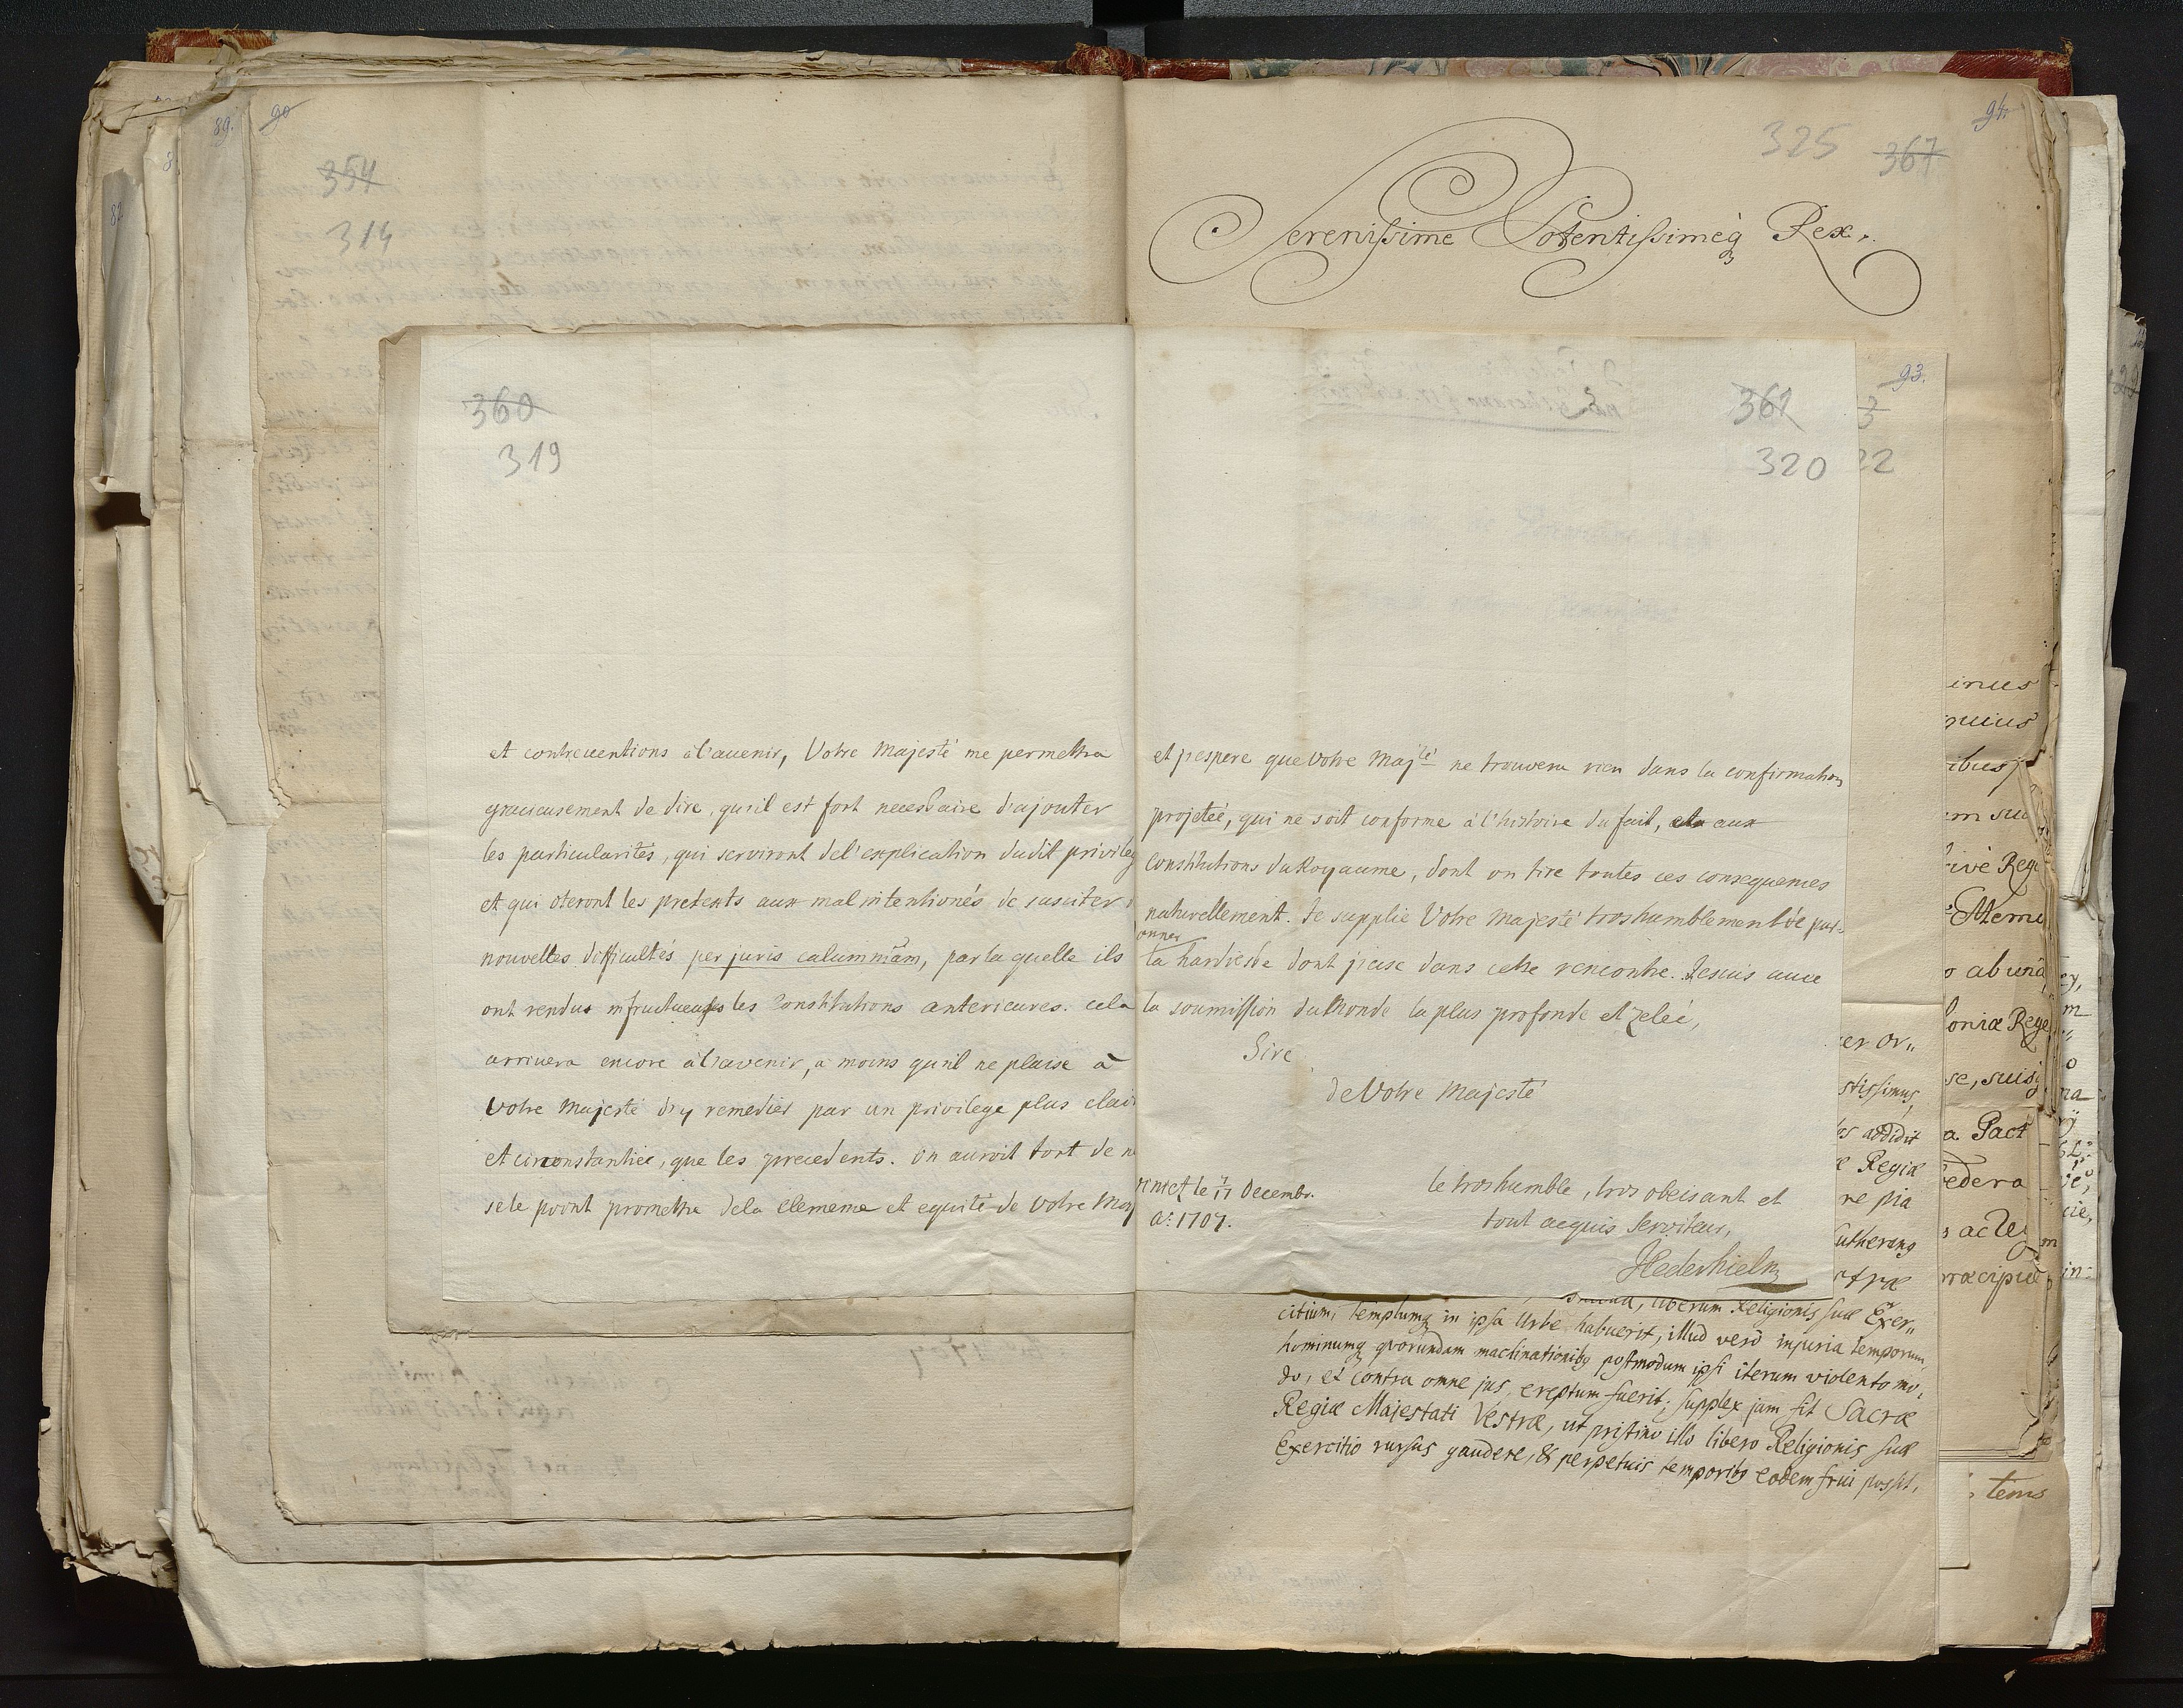 89.
90
354
314
360
319
et contreuentions à l'auenir, Votre Majesté me permettra
gracieusement de dire, qu'il est fort necessaire d'ajouter
les particularités, qui serviront de l'explication dudit privileg
et qui oteront les pretexts aux malintentionés de susciter
nouvelles difficultés per juris calumniam, par la quelle ils
ont rendus infructueuses les Constitutions anterieures. cela
arrivera encore à l'avenir, a moins qu'il ne plaise à
Votre Majesté d'y remedier par un privilege plus clair
et circonstantiée, que les precedents. On auroit tort de n
se le point promettre de la clemence et equité de Votre Maj
94.
325 367
Serenissime Potentissimeq Rex.
93.
361 3
320 22
et j'espere que Votre Maj.té ne trouvera rien dans la confirmation
projetée, qui ne soit conforme à l'histoire du fait, et aux
Constitutions du Royaume, dont on tire toutes ces consequences
naturellement. Je supplie Votre Majesté tres humblement de par-
onner
la hardiesse dont j'use dans cette rencontre. Je suis avec
la soumission du Monde la plus profonde et zelée,
Sire
de Votre Majesté
le tres humble, tres obeisant et
tout acquis Serviteur,
le 1/11 Decembr.
Ao. 1707.
Hederhielm
inus
quius
ibus
m su
ivè Reg
o ab una
loniæ Rege
se, suisq
a Pact
edera
s acte
ræcipuè
tems
er Or,,
stissimus,
as addidit
æ Regiæ
re pia
utherans
stræ
liberum Religionis suæ Exer,,
citium, templumq in ipsa Urbe habuerit, illud verò injuria temporum,
hominumq quorundam machinationibq postmodum ipsi iterum violento mo,
do, et contra omne jus, ereptum fuerit; supplex jam sit Sacræ
Regiæ Majestati Vestræ, ut pristino illo libero Religionis suæ
Exercitio rursus gaudere, & perpetuis temporibq eodem frui possit,